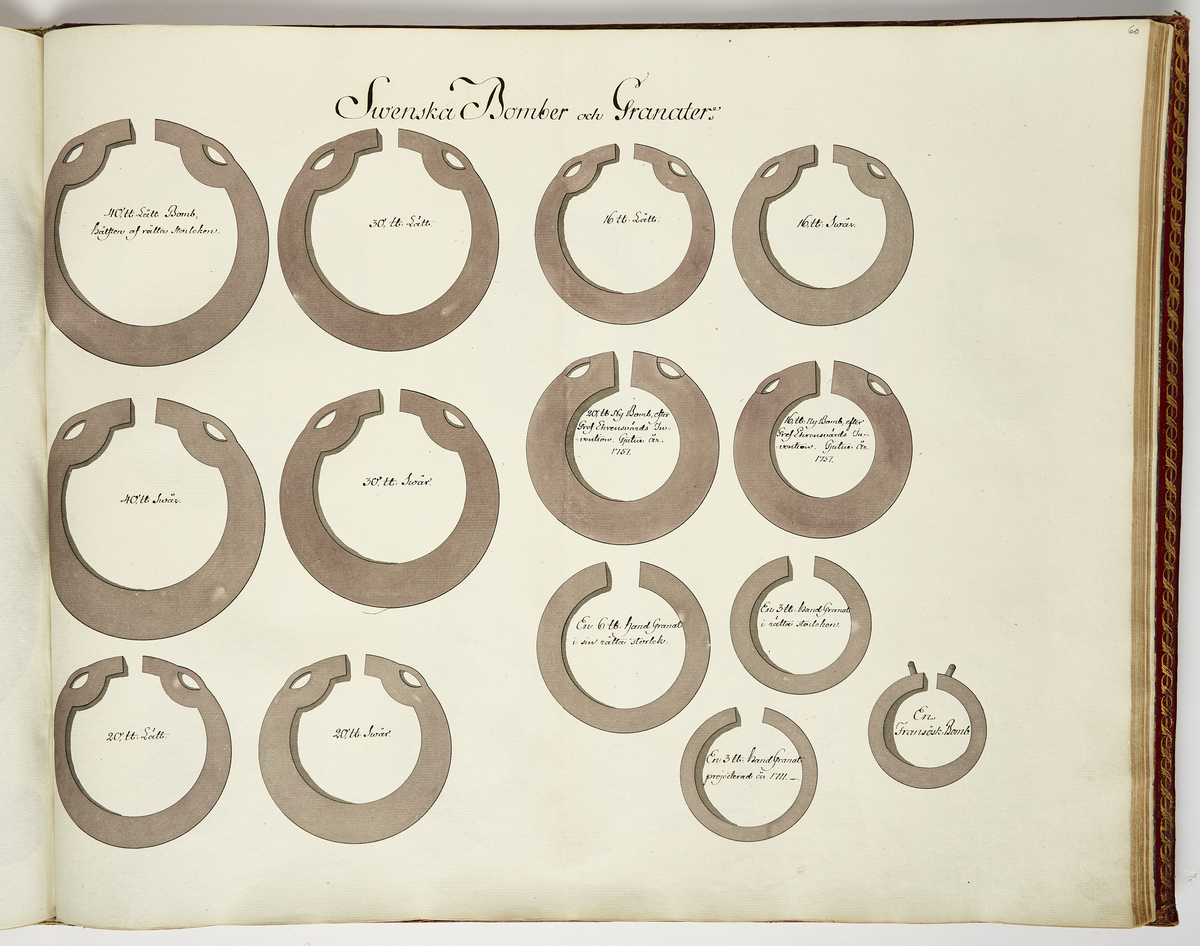 60
Swenska Bomber och Granater.
40,tt Lätt Bomb,
hälften af rätta storleken.
30, tt. Lätt.
16 tt. Lätt.
16, tt. Swår.
40, tt Swår.
30, tt. Swår.
20, tt Ny Bomb, efter
Gref Ehrensvärds In-
vention. Gjuten år.
1751.
16, tt. Ny Bomb, efter
Gref Ehrensvärds In-
vention. Gjuten år.
1751.
En 6 tt. Hand Granat
i sin rätta storlek.
En 3 tt. Hand Granat
i rätta storleken.
20, tt. Lätt.
20, tt Swår
En 3 tt. Hand Granat
projecterad år 1711.
En
Fransösk Bomb